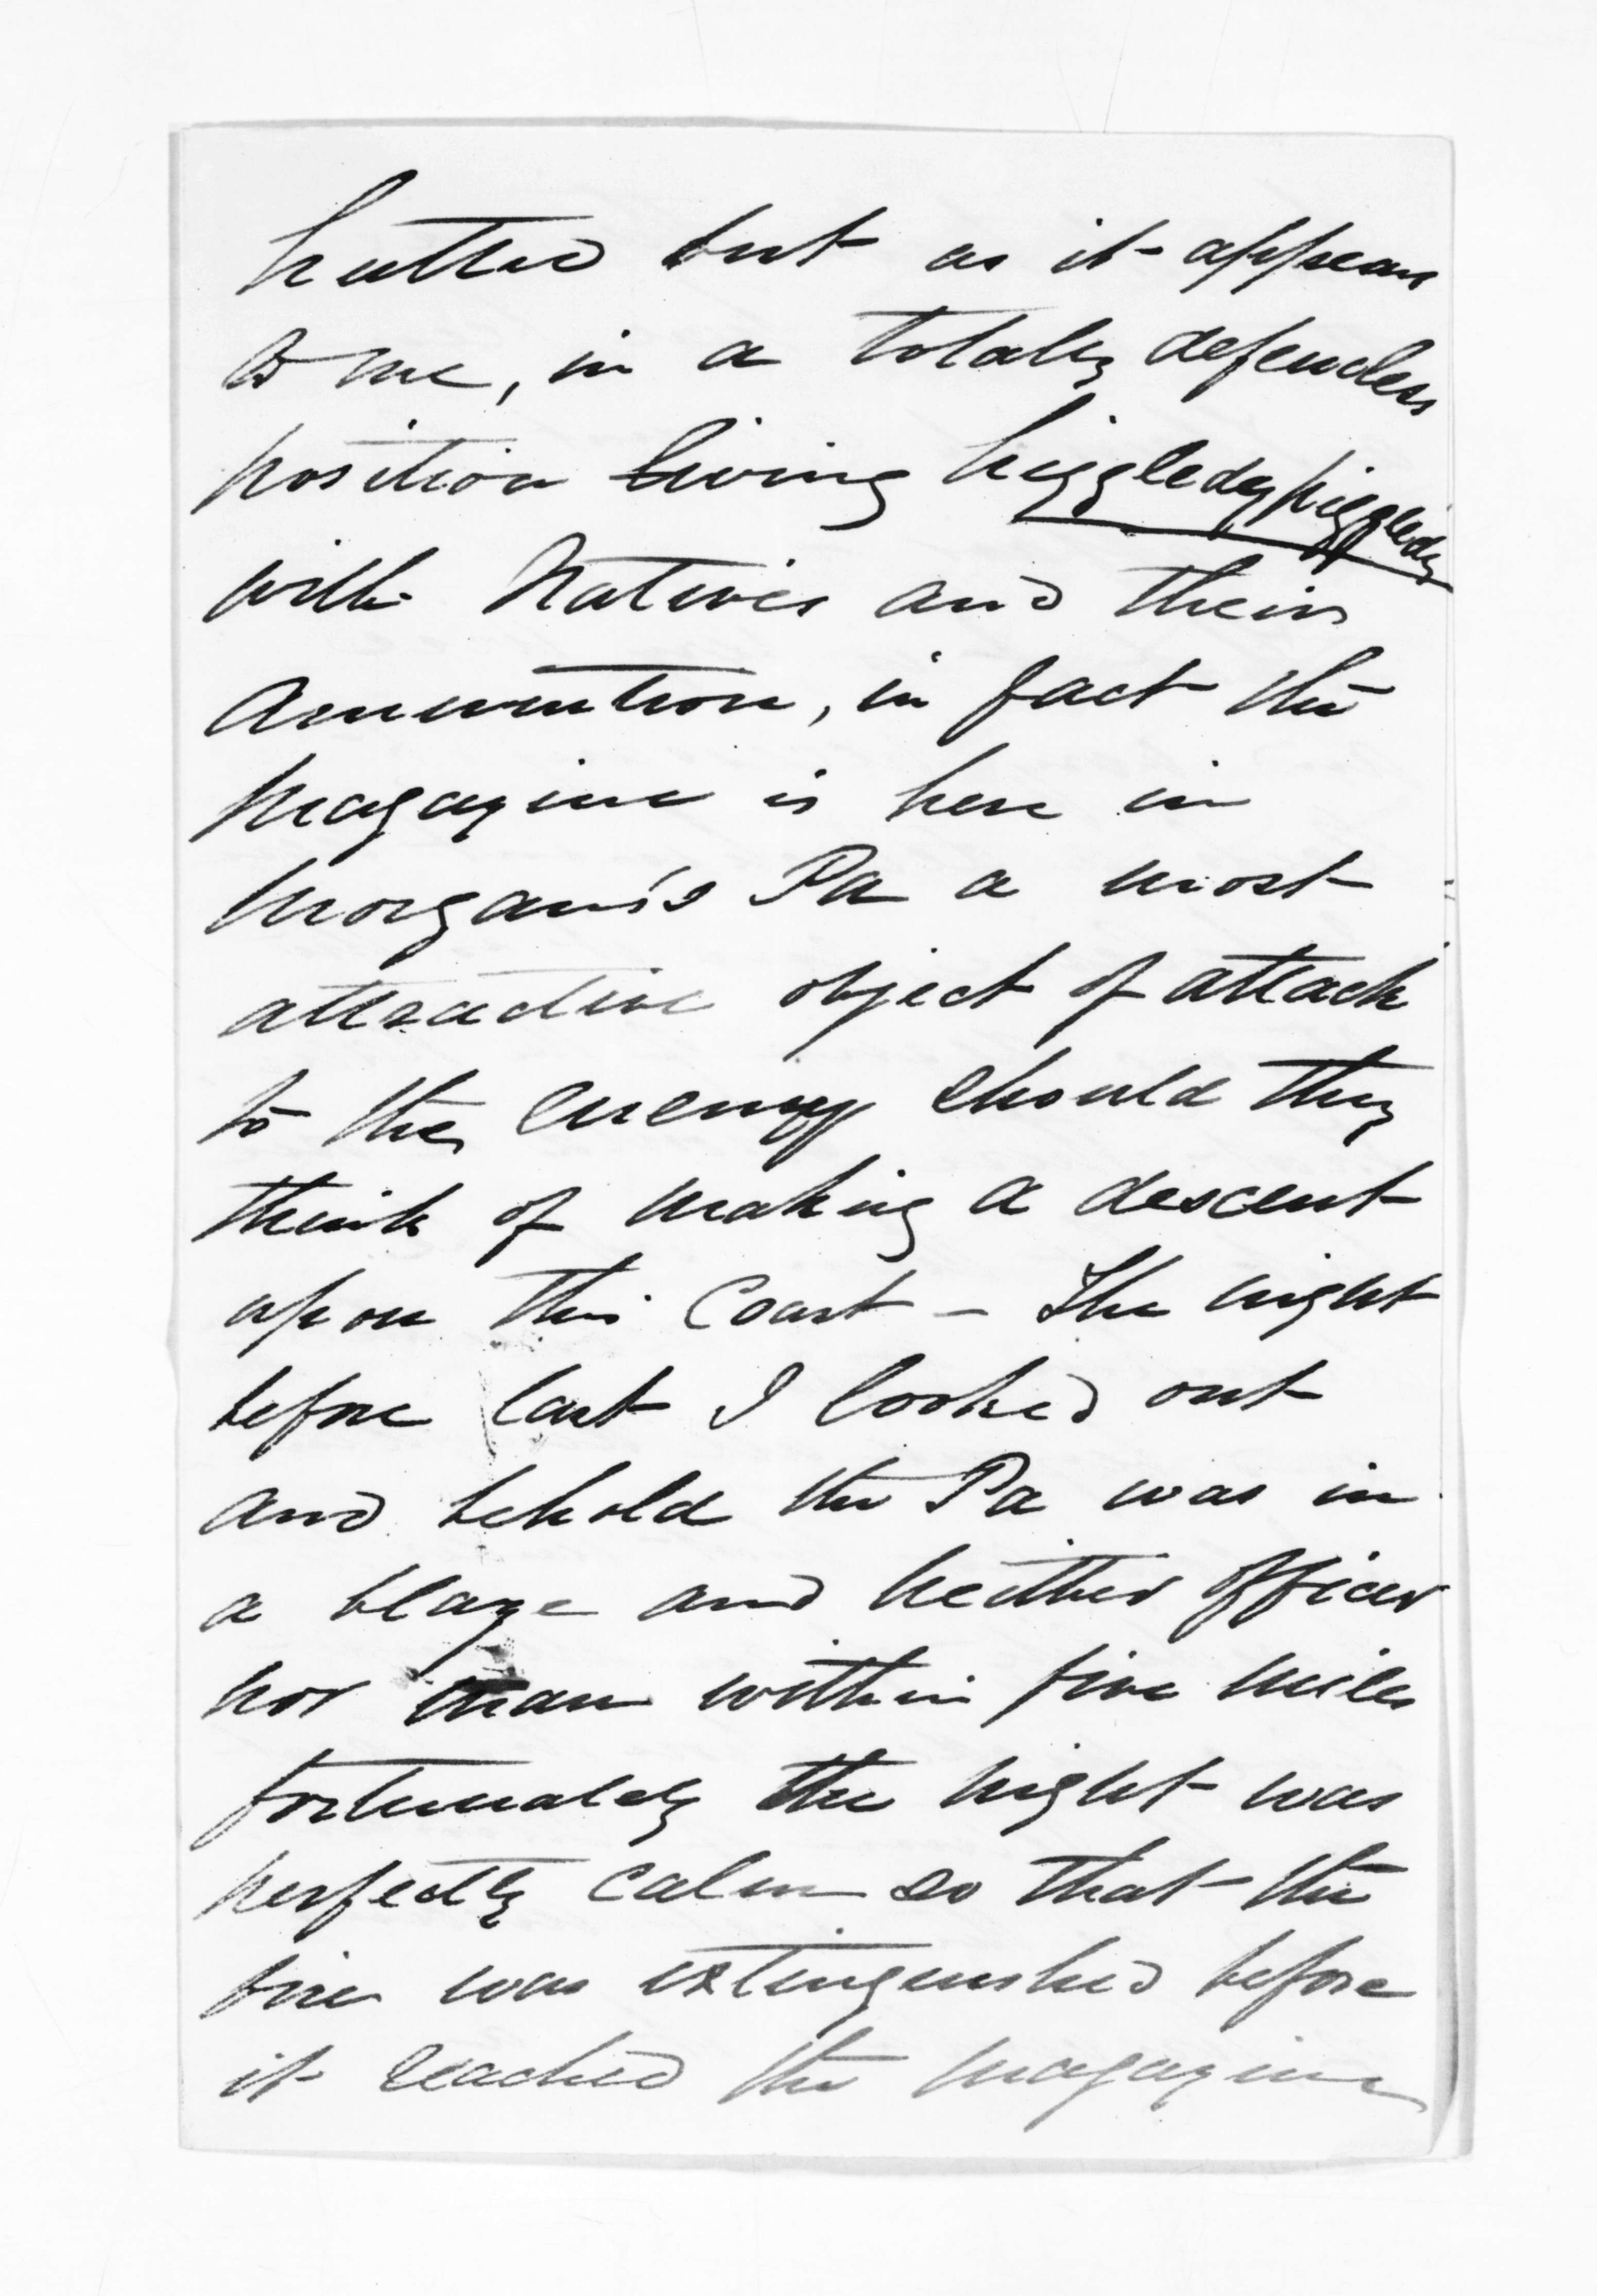 hutted but as it appears
to me, in a totally defenceless
position living higgledy piggledy
with Natives and their
Ammunition, in fact the
Magazine is here in
Morgan's Pa a most
attractive object of attack
to the enemy should they
think of making a descent
upon this Coast – The night
before last I looked out
and behold the Pa was in
a blaze and neither Officer
nor man within five miles
fortunately the night was
perfectly calm so that the
fire was extinguished before
it reached the magazine